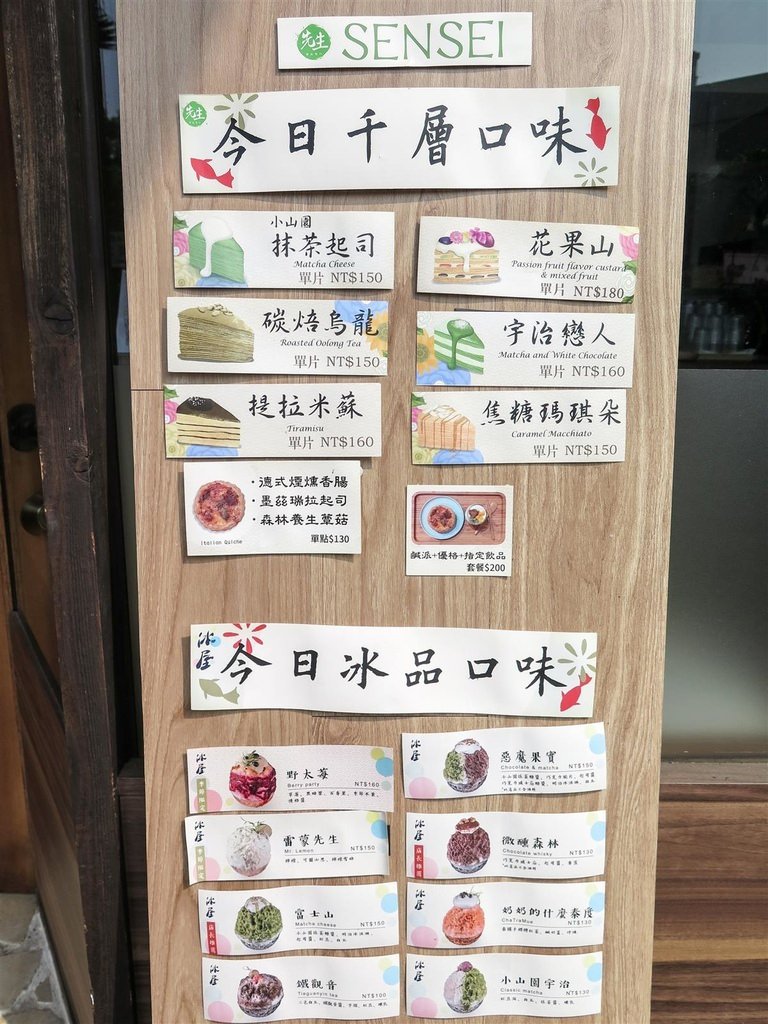 先生 SENSEI
先生
今日千層口味
小山園
抹茶起司
Matcha Cheese
單片 NT$150
花果山
Passion fruit flavor custard
& mixed fruit
單片 NT$180
碳焙烏龍
Roasted Oolong Tea
單片 NT$150
宇治戀人
Matcha and White Chocolate
單片 NT$160
提拉米蘇
Tiramisu
單片 NT$160
焦糖瑪琪朵
Caramel Macchiato
單片 NT$150
・德式煙燻香腸
・墨茲瑞拉起司
・森林養生蕈菇
Italian Quiche
單點$130
鹹派+優格+指定飲品
套餐$200
冰屋
今日冰品口味
冰屋
季節限定
野太莓
Berry party
NT$160
冰屋
惡魔果實
Chocolate & matcha
NT$150
冰屋
季節限定
雷蒙先生
Mr. Lemon
NT$150
冰屋
店長推薦
微醺森林
Chocolate whisky
NT$130
冰屋
店長推薦
富士山
Matcha cheese
NT$150
冰屋
奶奶的什麼泰度
ChaTraMue
NT$130
冰屋
鐵觀音
Tieguanyin tea
NT$100
冰屋
小山園宇治
Classic matcha
NT$130